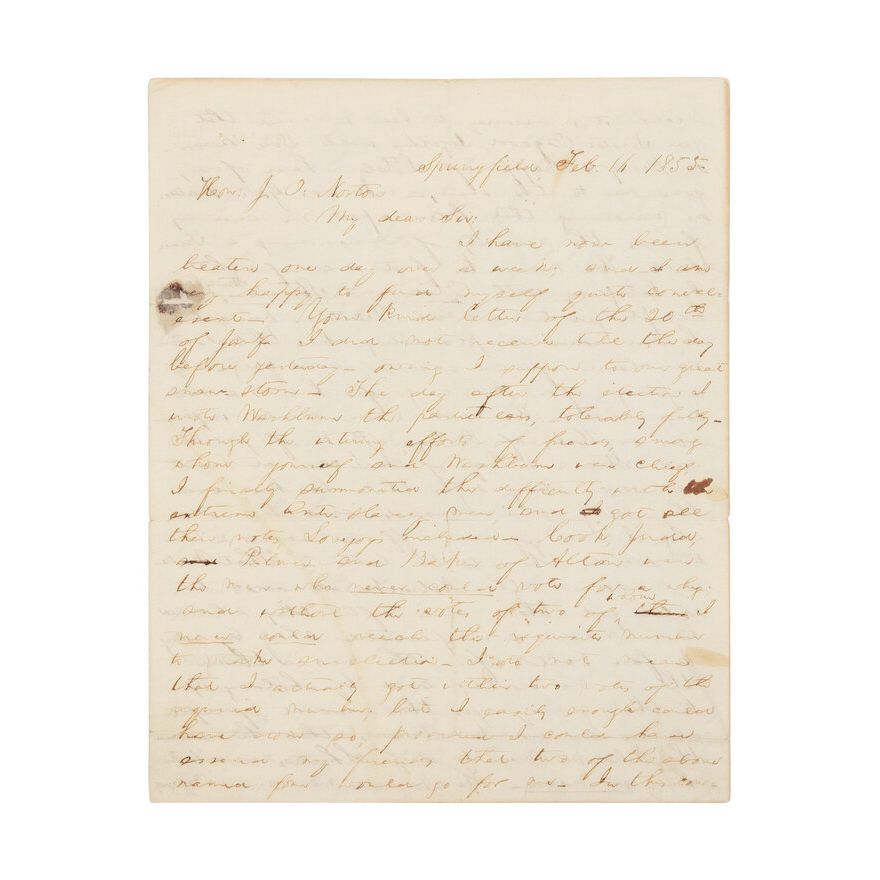 Springfield Feb. 16. 1855-
Hon: J. O. Norton
My dear Sir:
I have now been
beaten one day over a week; and I am
very happy to find myself quite conval-
escent- Your kind letter of the 20th
of Jany I did not receive till the day
before yesterday- owing I suppose to our great
snow-storm- The day after the election I
wrote Washburne the particulars, tolerably fully-
Through the untiring efforts of friends, among
whom yourself and Washburne were chief,
I finally surmounted the difficulty with the
extreme Anti-Slavery men, and got all
their votes, Lovejoy's included- Cook, Judd,
Palmer and Baker of Alton were
the men who never could vote for a whig;
and without the votes of two of whom I
never could reach the requisite number
to make an election- I do not mean
that I actually got within two votes of the
required number; but I easily enough could
have done so, provided I could have
assured my friends that two of the above
named four would go for me- In this con-